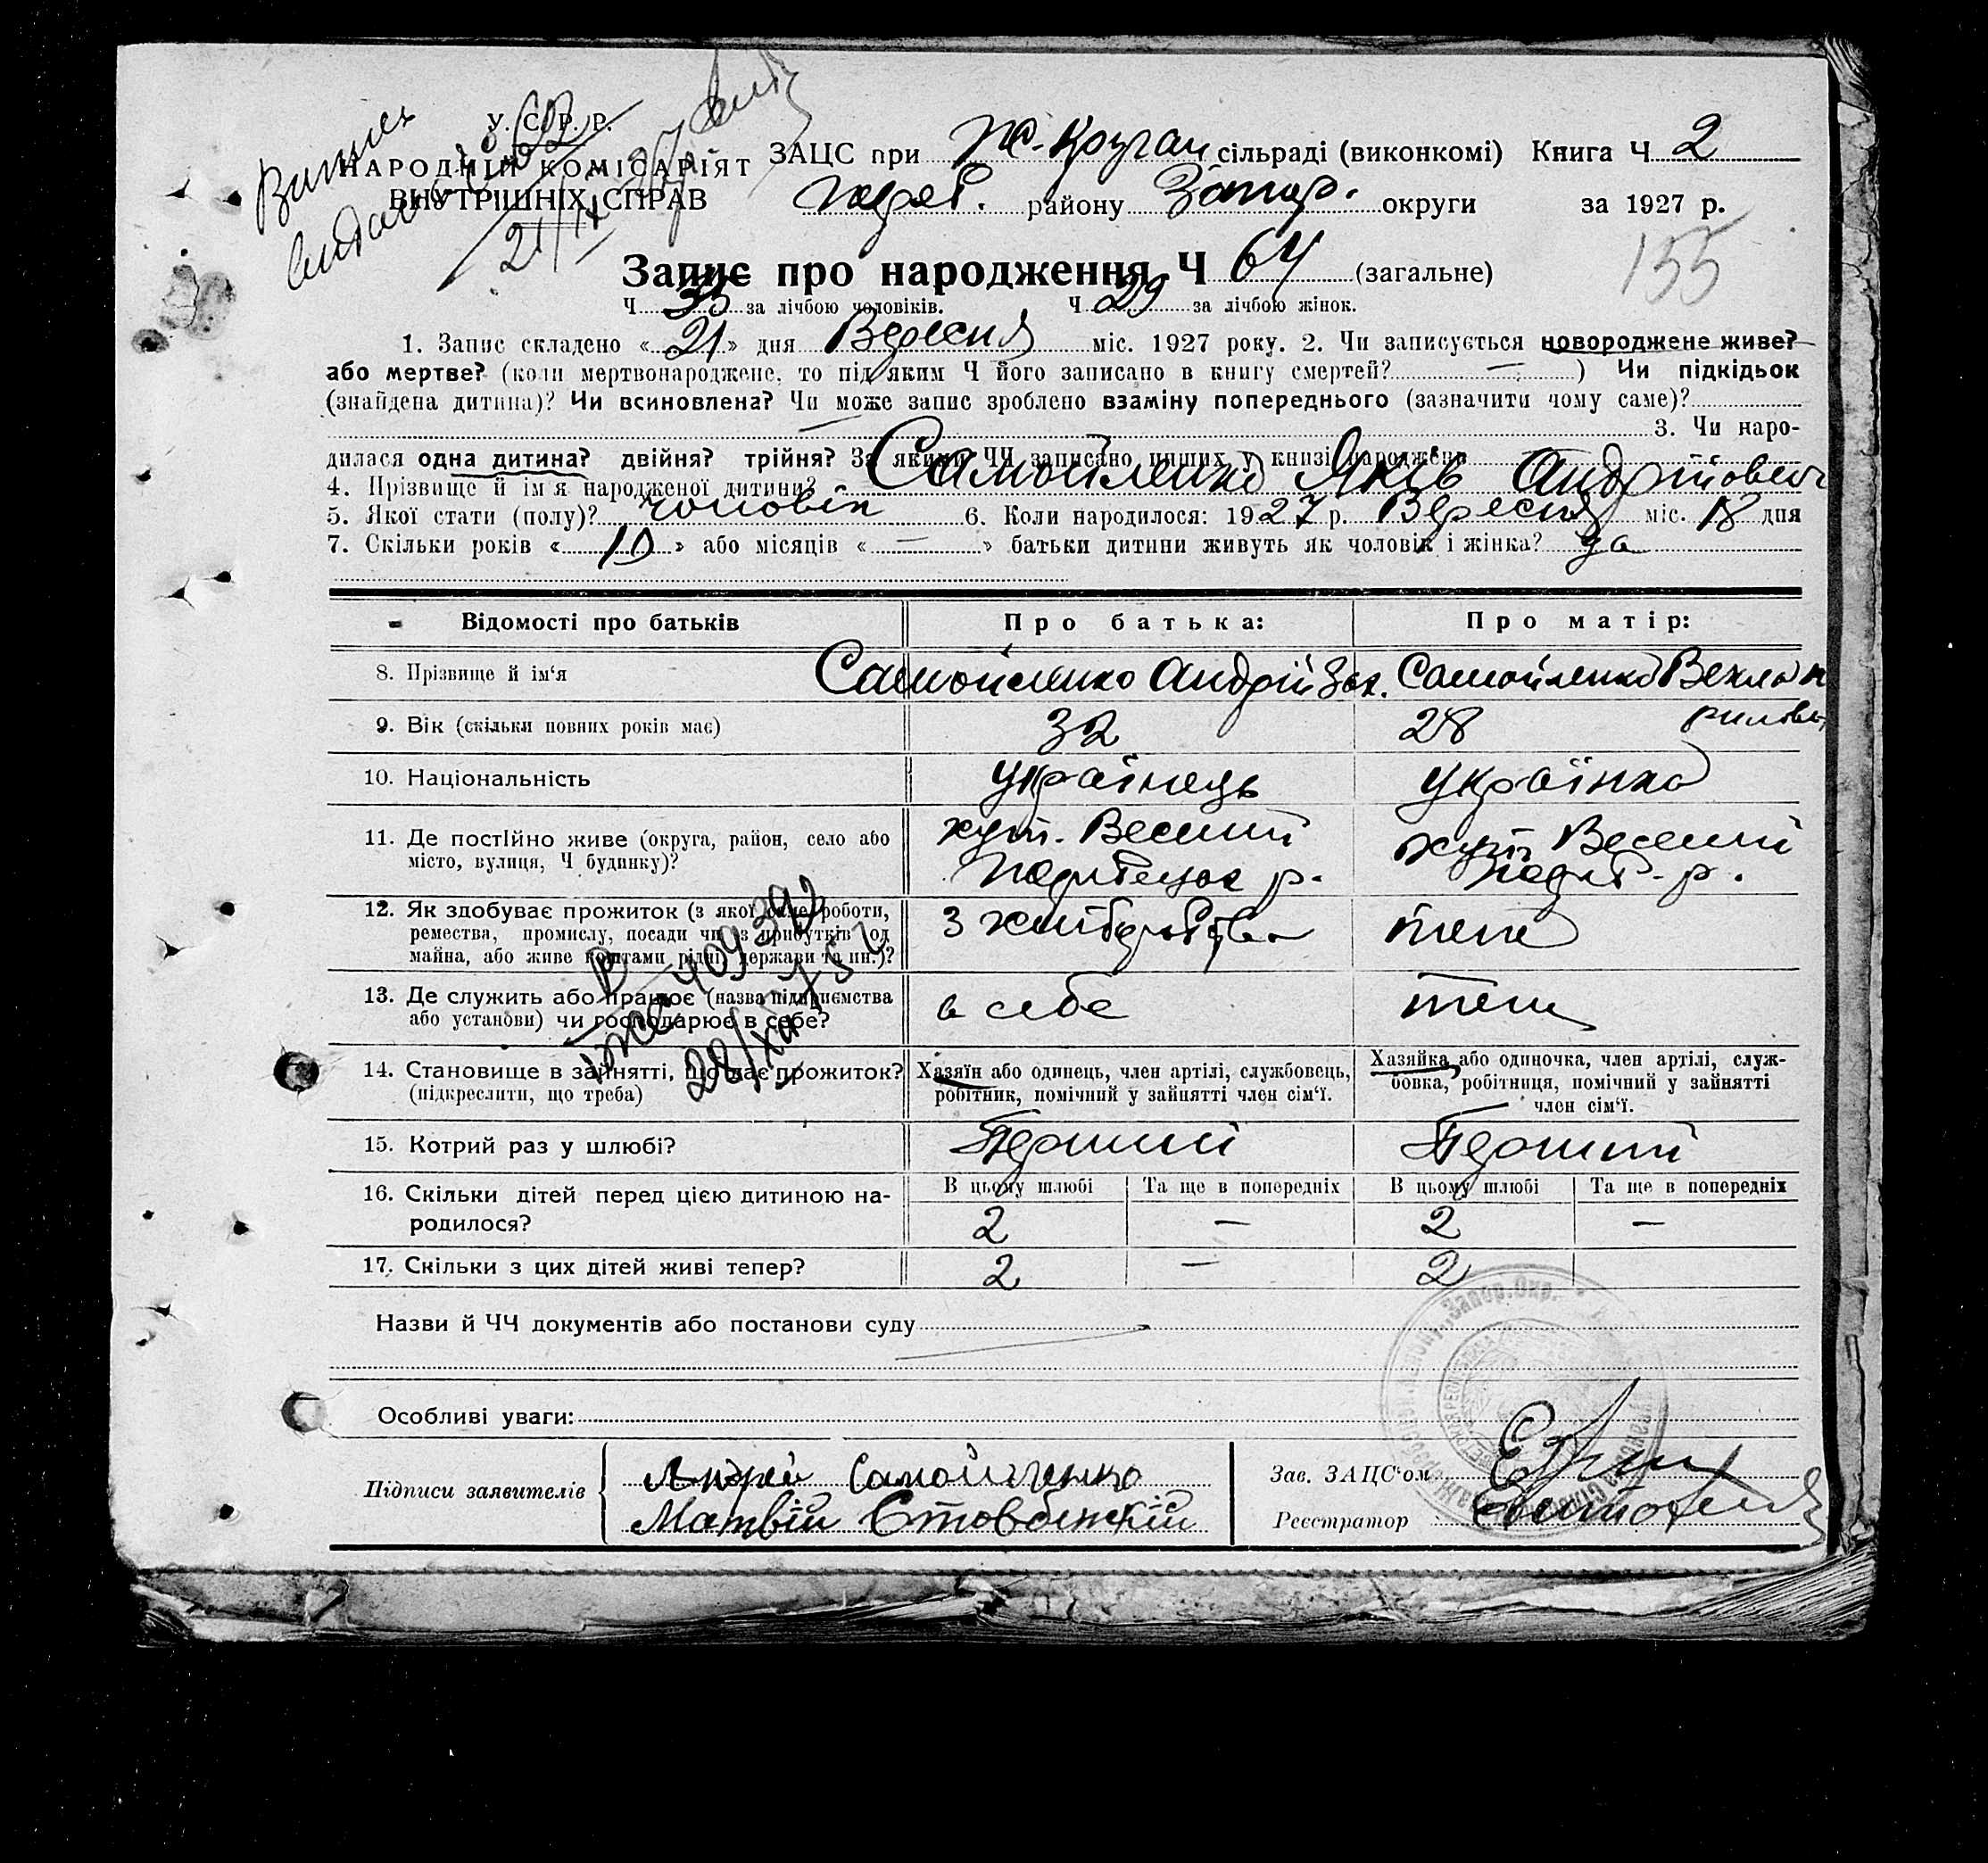 У. С. Р. Р.
НАРОДНІЙ КОМІСАРІЯТ
ВНУТРІШНІХ СПРАВ
ЗАЦС при сільраді (виконкомі) Книга Ч 2
району Запор. округи за 1927 р.
155
Запис про народження Ч 64 (загальне)
Ч 35 за лічбою чоловіків. Ч 29 за лічбою жінок.
1. Запис складено « 21 » дня Вересня міс. 1927 року. 2. Чи записується новороджене живе?
або мертве? (коли мертвонароджене, то під яким Ч його записано в книгу смертей? — ) Чи підкідьок
(знайдена дитина)? Чи всиновлена? Чи може запис зроблено взаміну попереднього (зазначити чому саме)?
— 3. Чи наро-
дилася одна дитина? двійня? трійня? За якими ЧЧ записано инших у книзі народжень
4. Прізвище й ім'я народженої дитини? Самойленко Яків Андрійович
5. Якої стати (полу)? чоловік 6. Коли народилося: 1927 р. Вересня міс. 18 дня
7. Скільки років « 10 » або місяців « — » батьки дитини живуть як чоловік і жінка? да
Відомості про батьків Про батька: Про матір:
8. Прізвище й ім'я Самойленко Андрій Зах. Самойленко Векла
9. Вік (скільки повних років має) 32 28
10. Національність Українець Українка
11. Де постійно живе (округа, район, село або
місто, вулиця, Ч будинку)? хут. Веселий р. хут. Веселий р.
12. Як здобуває прожиток (з якої саме роботи,
ремества, промислу, посади чи з прибутків од
майна, або живе коштами рідні, держави та ин.)? З хліборобства теж
13. Де служить або працює (назва підприємства
або установи) чи господарює в себе? в себе теж
409392
14. Становище в зайнятті, що дає прожиток?
(підкреслити, що треба)
Хазяїн або одинець, член артілі, службовець,
робітник, помічний у зайнятті член сім'ї.
Хазяйка або одиночка, член артілі, служ-
бовка, робітниця, помічний у зайнятті
член сім'ї.
15. Котрий раз у шлюбі? Перший Перший
16. Скільки дітей перед цією дитиною на-
родилося?
В цьому шлюбі Та ще в попередніх В цьому шлюбі Та ще в попередніх
2 — 2 —
17. Скільки з цих дітей живі тепер? 2 — 2
Назви й ЧЧ документів або постанови суду
Особливі уваги:
Підписи заявителів
Андрей Самойленко
Матвій Стовбенскій
Зав. ЗАЦС'ом
Реєстратор